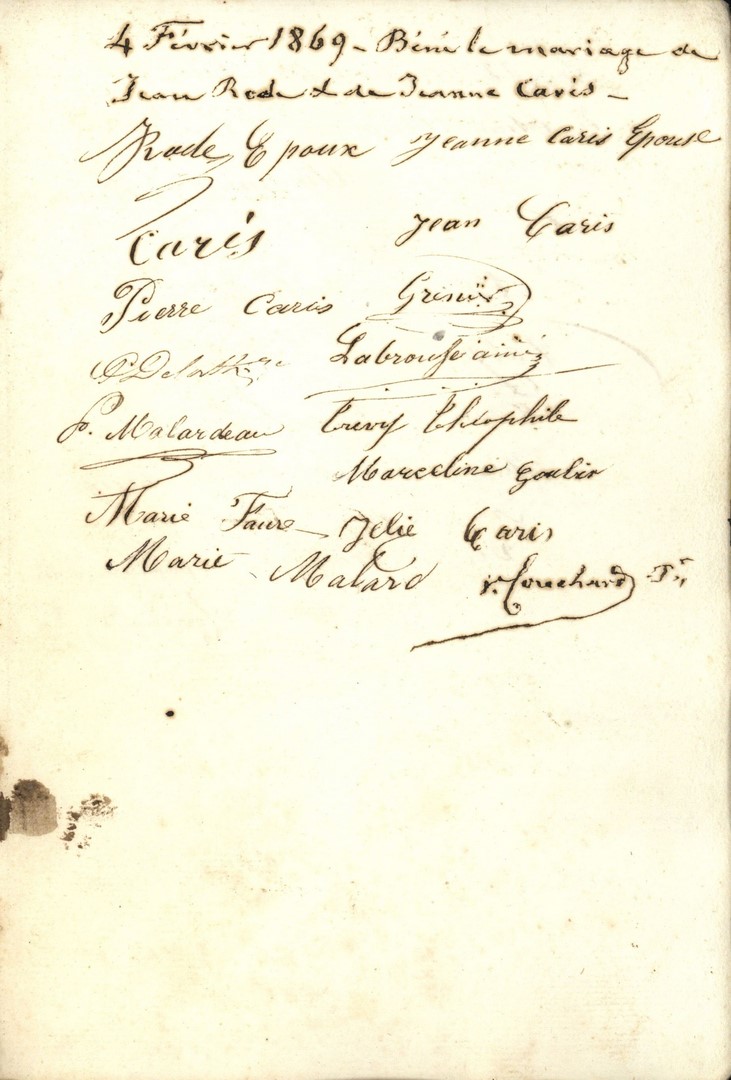 4 Février 1869 - Béni le mariage de
Jean Rode & de Jeanne Caris -
Rode Epoux Jeanne Caris Epouse
Caris Jean Caris
Pierre Caris Grenier
Labrousse ainé
P. Malardeau Trevy Théophile
Marceline Goulin
Marie Faure Jelie Caris
Marie Malard v. Couchard